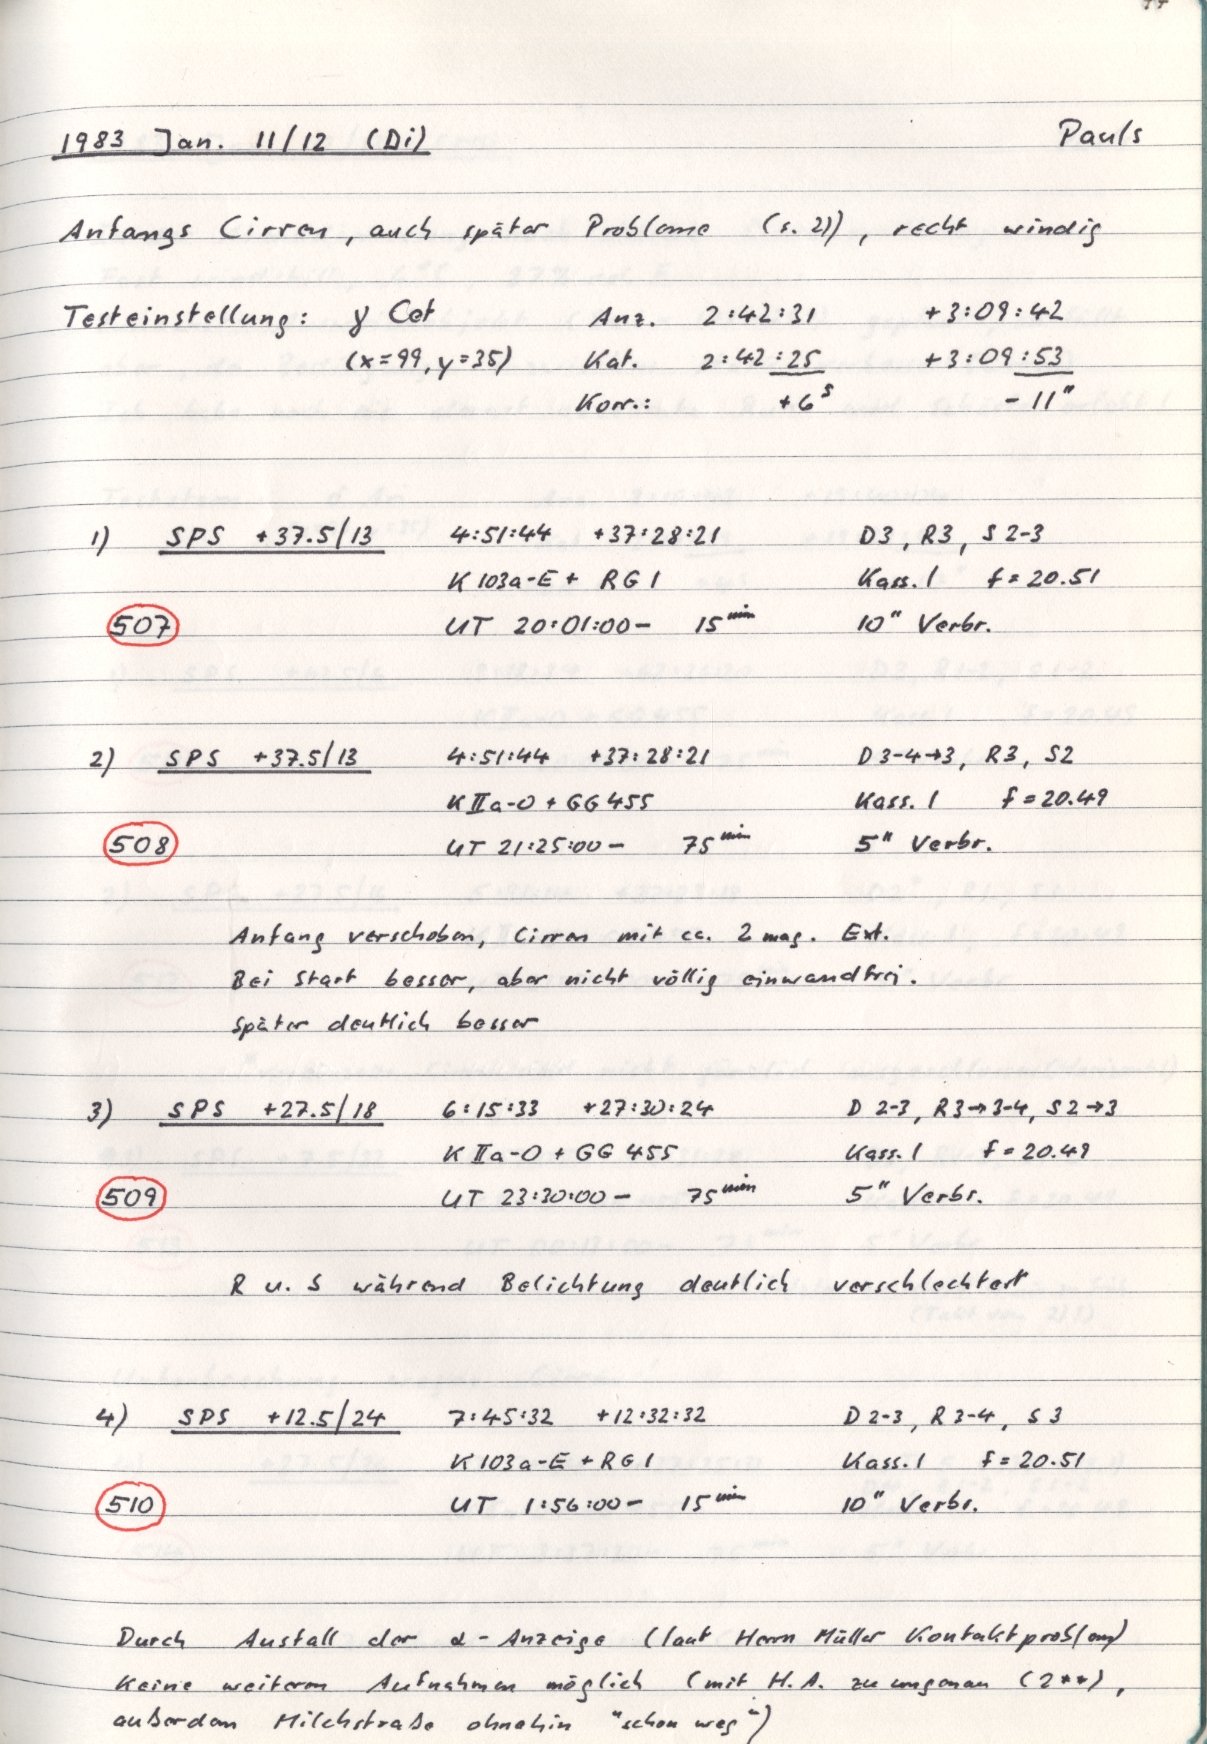 1983 Jan. 11/12 (Di) Pauls
Anfangs Cirren, auch später Probleme (s. 2)), recht windig
Testeinstellung: γ Cet Anz. 2:42:31 +3:09:42
(x=99, y=35) Kat. 2:42:25 +3:09:53
Korr.: +6ˢ -11"
1) SPS +37.5/13 4:51:44 +37:28:21 D3, R3, S2-3
K 103a-E + RG1 Kass. 1 f=20.51
507 UT 20:01:00- 15ᵐⁱⁿ 10" Verbr.
2) SPS +37.5/13 4:51:44 +37:28:21 D3-4→3, R3, S2
K IIa-O + GG455 Kass. 1 f=20.49
508 UT 21:25:00- 75ᵐⁱⁿ 5" Verbr.
Anfang verschoben, Cirren mit ca. 2 mag. Ext.
Bei Start besser, aber nicht völlig einwandfrei.
Später deutlich besser
3) SPS +27.5/18 6:15:33 +27:30:24 D 2-3, R3→3-4, S2→3
K IIa-O + GG 455 Kass. 1 f=20.49
509 UT 23:30:00- 75ᵐⁱⁿ 5" Verbr.
R u. S während Belichtung deutlich verschlechtert
4) SPS +12.5/24 7:45:32 +12:32:32 D2-3, R3-4, S3
K 103a-E + RG1 Kass. 1 f=20.51
510 UT 1:56:00- 15ᵐⁱⁿ 10" Verbr.
Durch Ausfall der α-Anzeige (laut Herrn Müller Kontaktproblem)
keine weiteren Aufnahmen möglich (mit H.A. zu ungenau (2**),
außerdem Milchstraße ohnehin "schon weg")